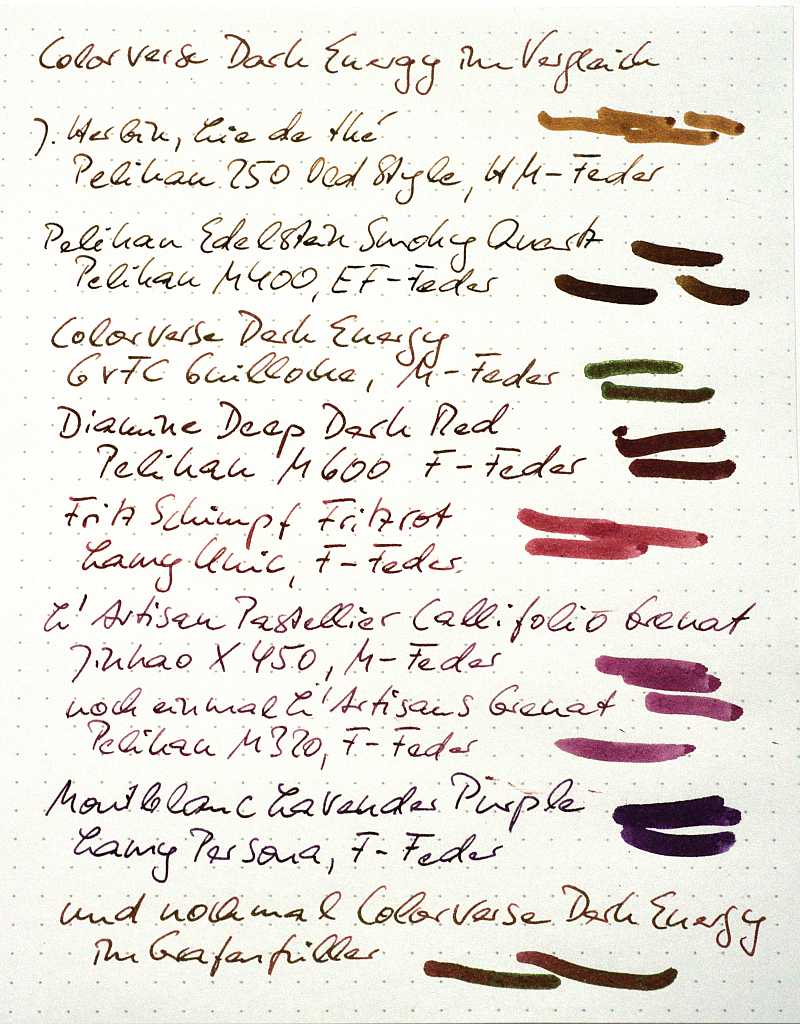 Colorverse Dark Energy im Vergleich
J. Herbin, Lie de thé
Pelikan 250 Old Style, HM-Feder
Pelikan Edelstein Smoky Quartz
Pelikan M400, EF-Feder
Colorverse Dark Energy
GvFC Guilloche, M-Feder
Diamine Deep Dark Red
Pelikan M600 F-Feder
Fritz Schimpf Fritzrot
Lamy Unic, F-Feder
L'Artisan Pastellier Callifolio Grenat
Jinhao X450, M-Feder
noch einmal L'Artisans Grenat
Pelikan M320, F-Feder
Montblanc Lavender Purple
Lamy Persona, F-Feder
und nochmal Colorverse Dark Energy
im Grafenfüller